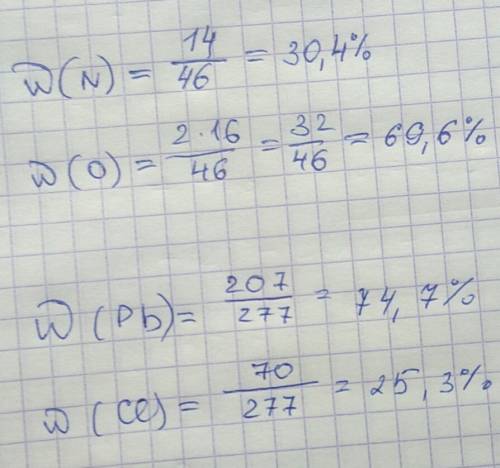 W(N) = 14/46 = 30,4%
W(O) = 2·16/46 = 32/46 = 69,6%
W(Pb) = 207/277 = 74,7%
W(Cl) = 70/277 = 25,3%